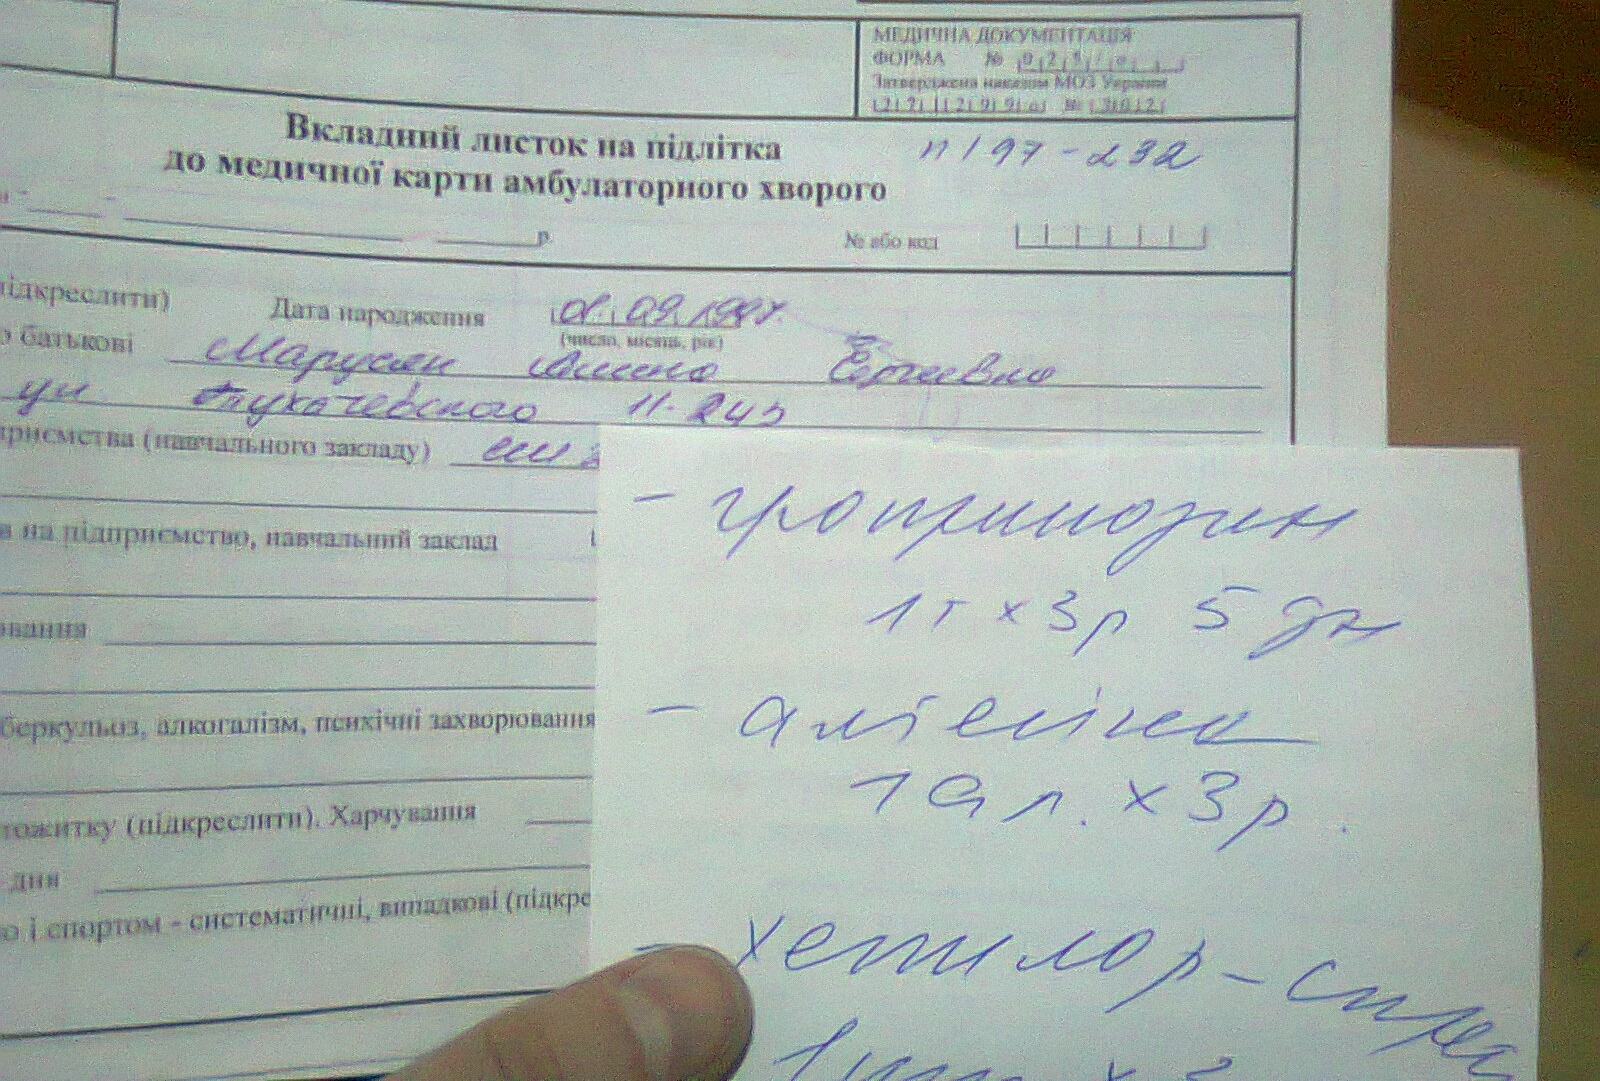 МЕДИЧНА ДОКУМЕНТАЦІЯ
ФОРМА № 025/о
Затверджена наказом МОЗ України
27 12 99 № 302
Вкладний листок на підлітка
до медичної карти амбулаторного хворого
п/97-232
р.
№ або код
підкреслити)
Дата народження 01.09.1997.
(число, місяць, рік)
о батькові Марусяк Алина Сергеевна
ул Тухачевского 11-243
приємства (навчального закладу) сш
в на підприємство, навчальний заклад
ування
беркульоз, алкогалізм, психічні захворювання
тожитку (підкреслити). Харчування
дня
ю і спортом - систематичні, випадкові (підкре
- гропринозин
1т х 3р 5 дн
- алтейка
1 дл. х 3р.
- хепилор-спрей
1 х 3